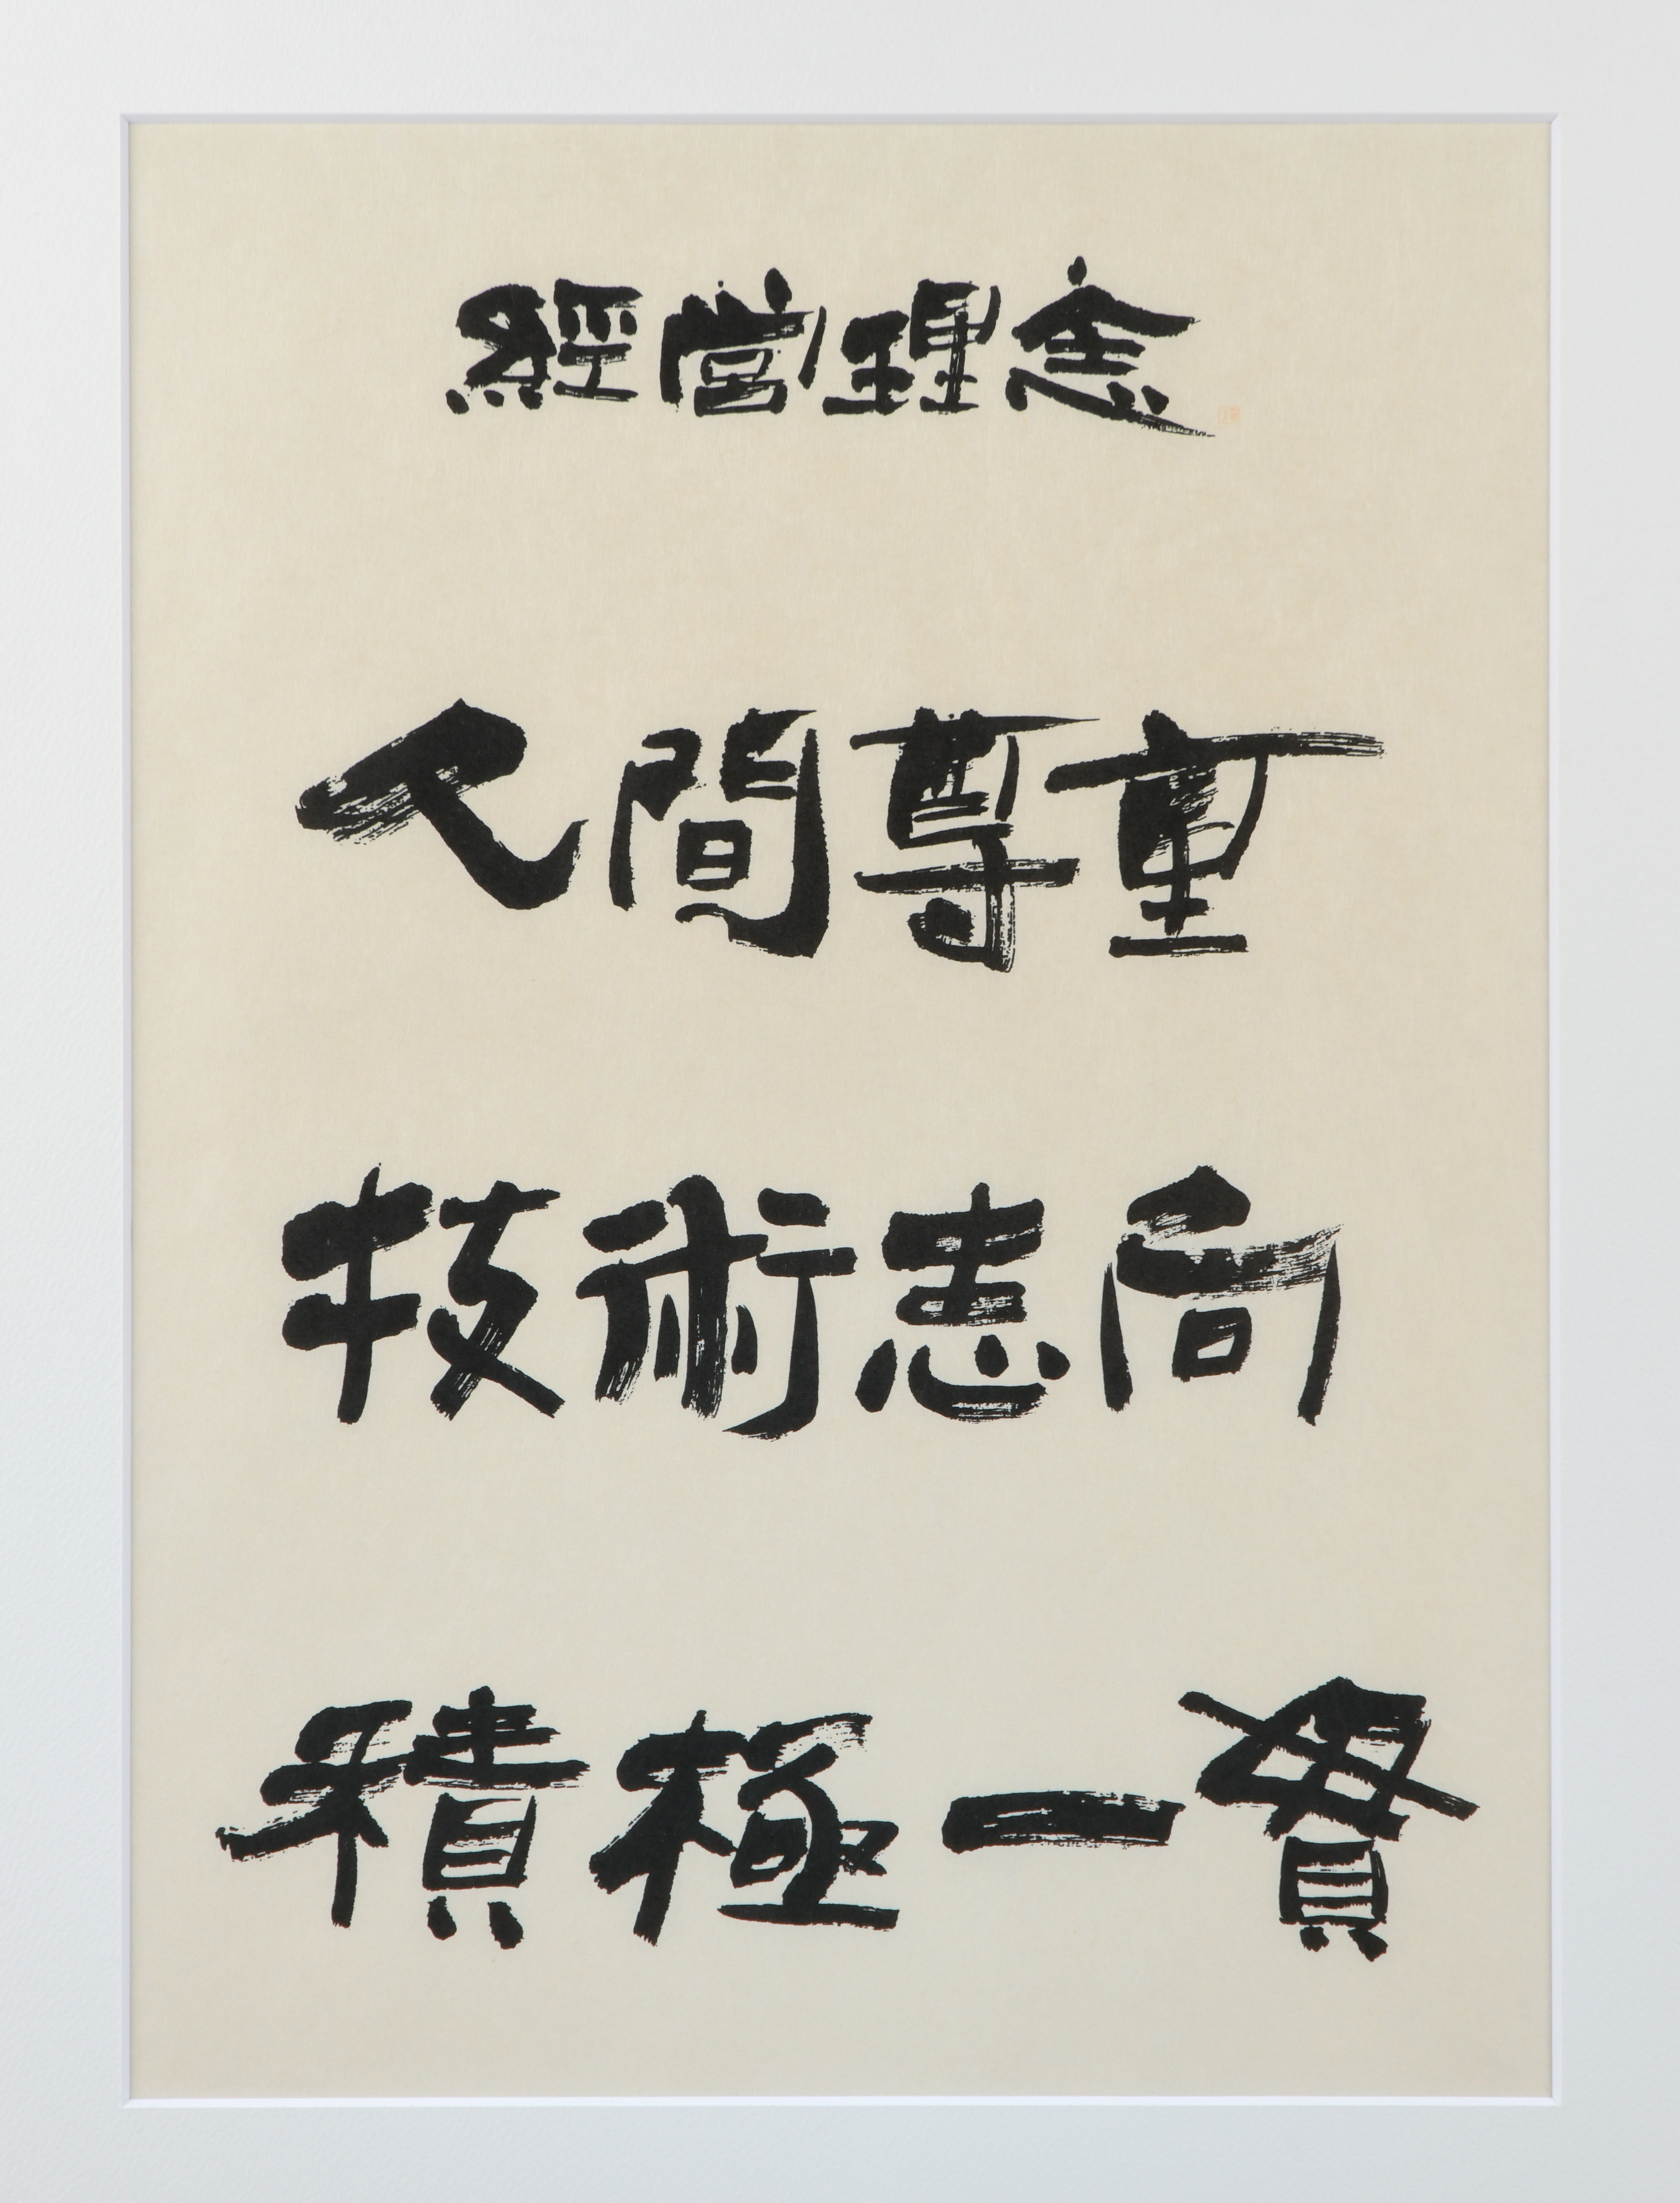 經營理念
人間尊重
技術志向
積極一貫